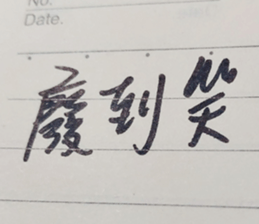 No.
Date.
廢到笑